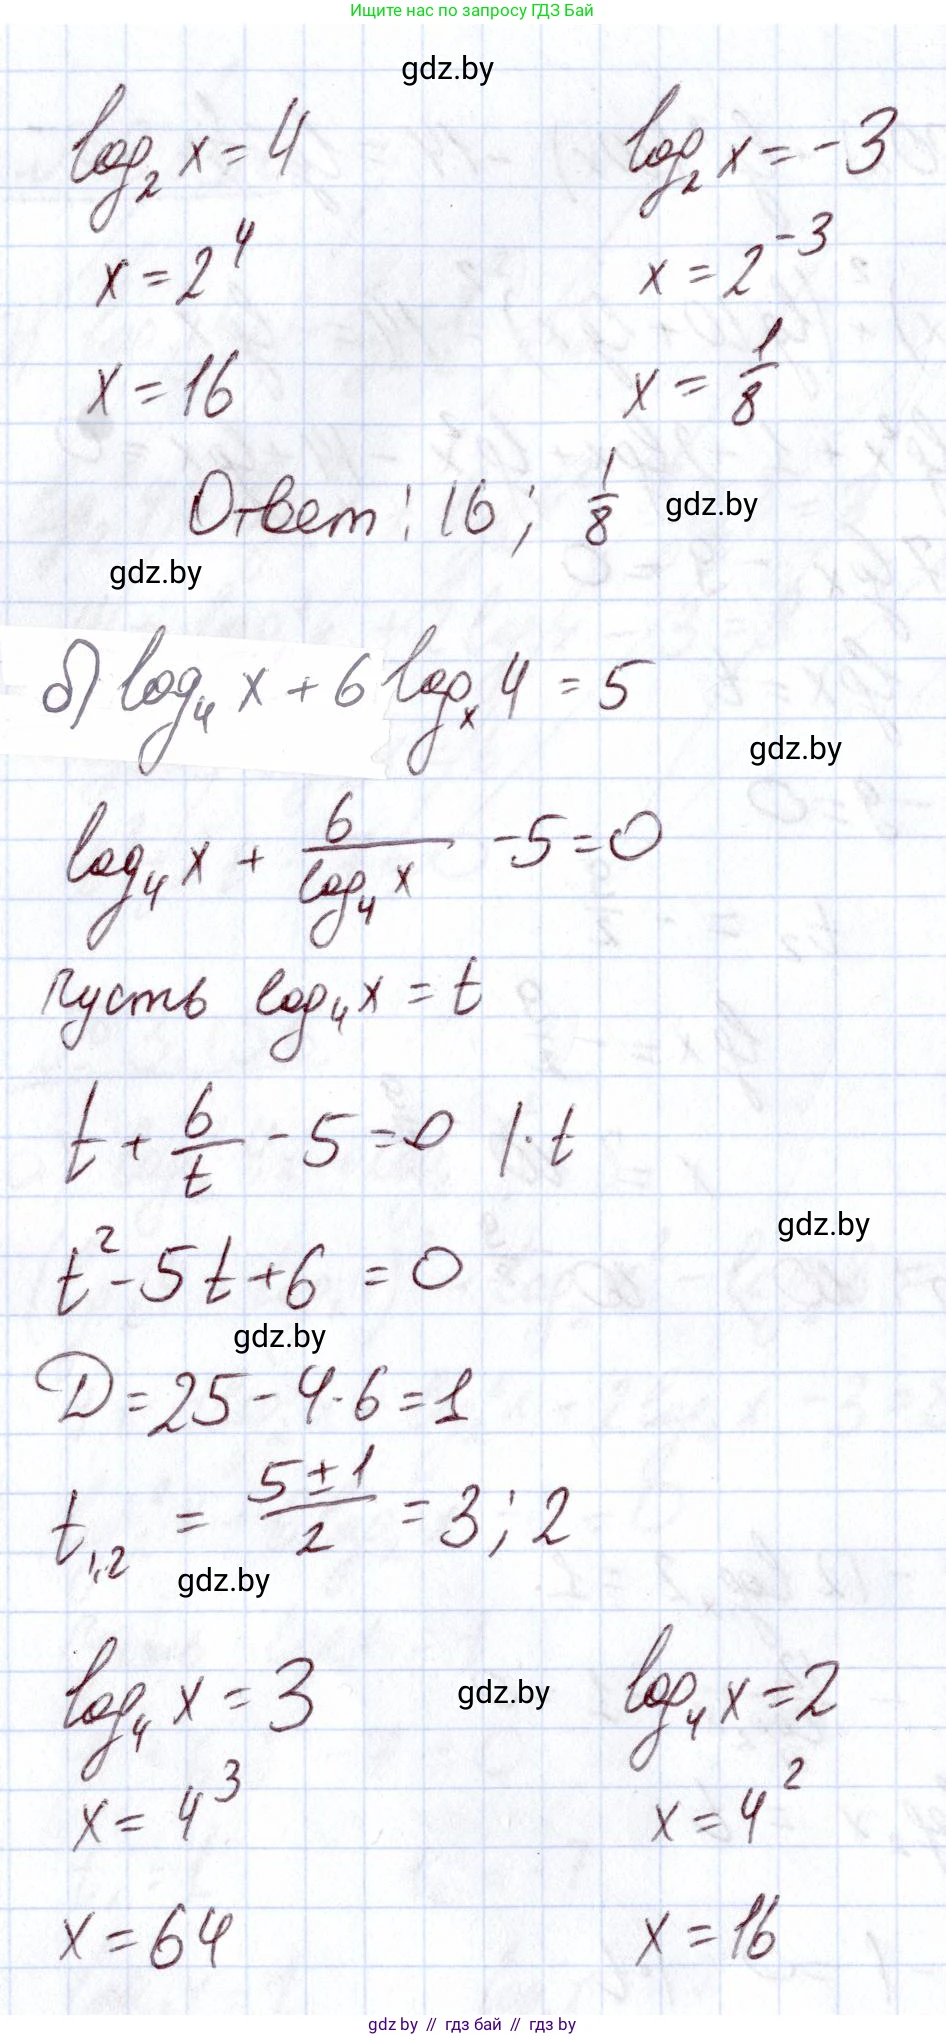 Ищите нас по запросу ГДЗ Бай
gdz.by
log₂ x = 4    log₂ x = -3
x = 2⁴    x = 2⁻³
x = 16    x = 1/8
Ответ: 16; 1/8    gdz.by
gdz.by
б) log₄ x + 6 logₓ 4 = 5
gdz.by
log₄ x + 6/(log₄ x) - 5 = 0
пусть log₄ x = t
t + 6/t - 5 = 0 | · t
gdz.by
t² - 5t + 6 = 0
gdz.by
D = 25 - 4 · 6 = 1
t₁,₂ = (5 ± 1)/2 = 3; 2
gdz.by
log₄ x = 3    gdz.by    log₄ x = 2
x = 4³    x = 4²
x = 64    x = 16
gdz.by // гдз бай // gdz by